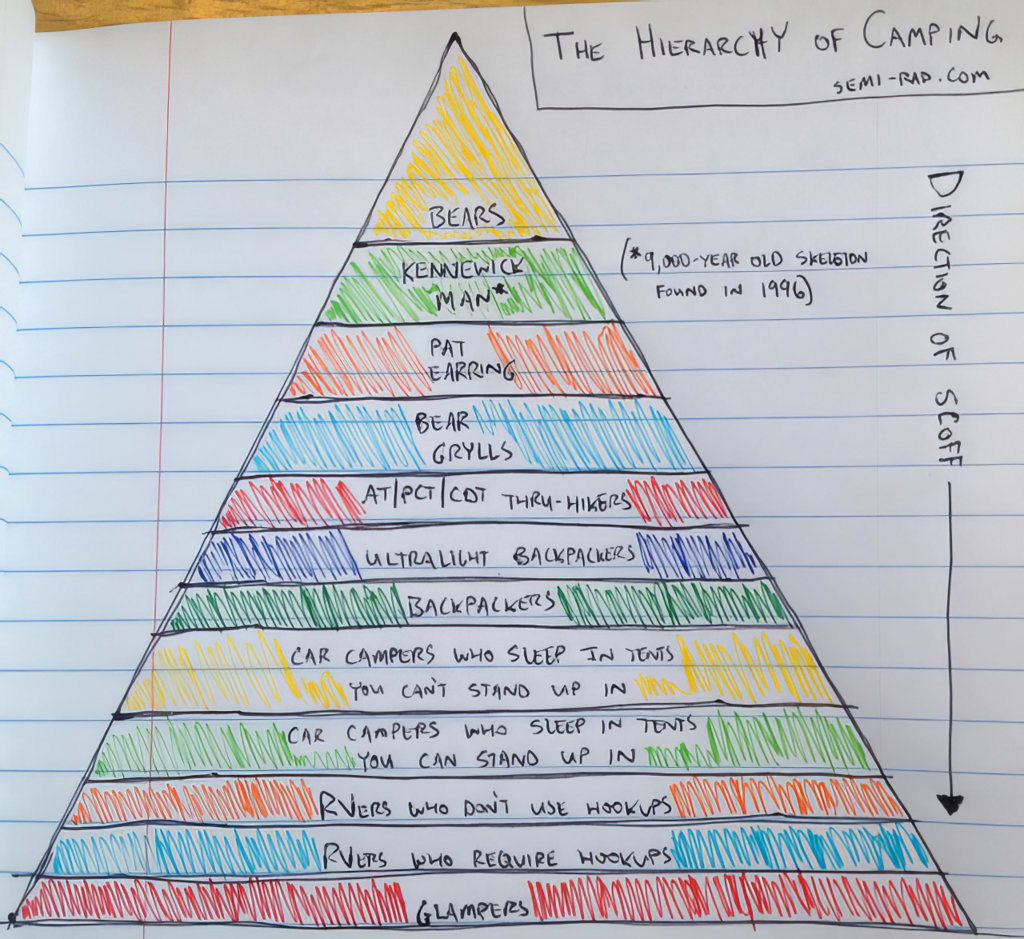 THE HIERARCHY OF CAMPING
SEMI-RAD.COM
BEARS
KENNEWICK
MAN*
(*9,000-YEAR OLD SKELETON
FOUND IN 1996)
PAT
EARRING
BEAR
GRYLLS
AT/PCT/CDT THRU-HIKERS
ULTRALIGHT BACKPACKERS
BACKPACKERS
CAR CAMPERS WHO SLEEP IN TENTS
YOU CAN'T STAND UP IN
CAR CAMPERS WHO SLEEP IN TENTS
YOU CAN STAND UP IN
RVERS WHO DON'T USE HOOKUPS
RVERS WHO REQUIRE HOOKUPS
GLAMPERS
DIRECTION OF SCOFF